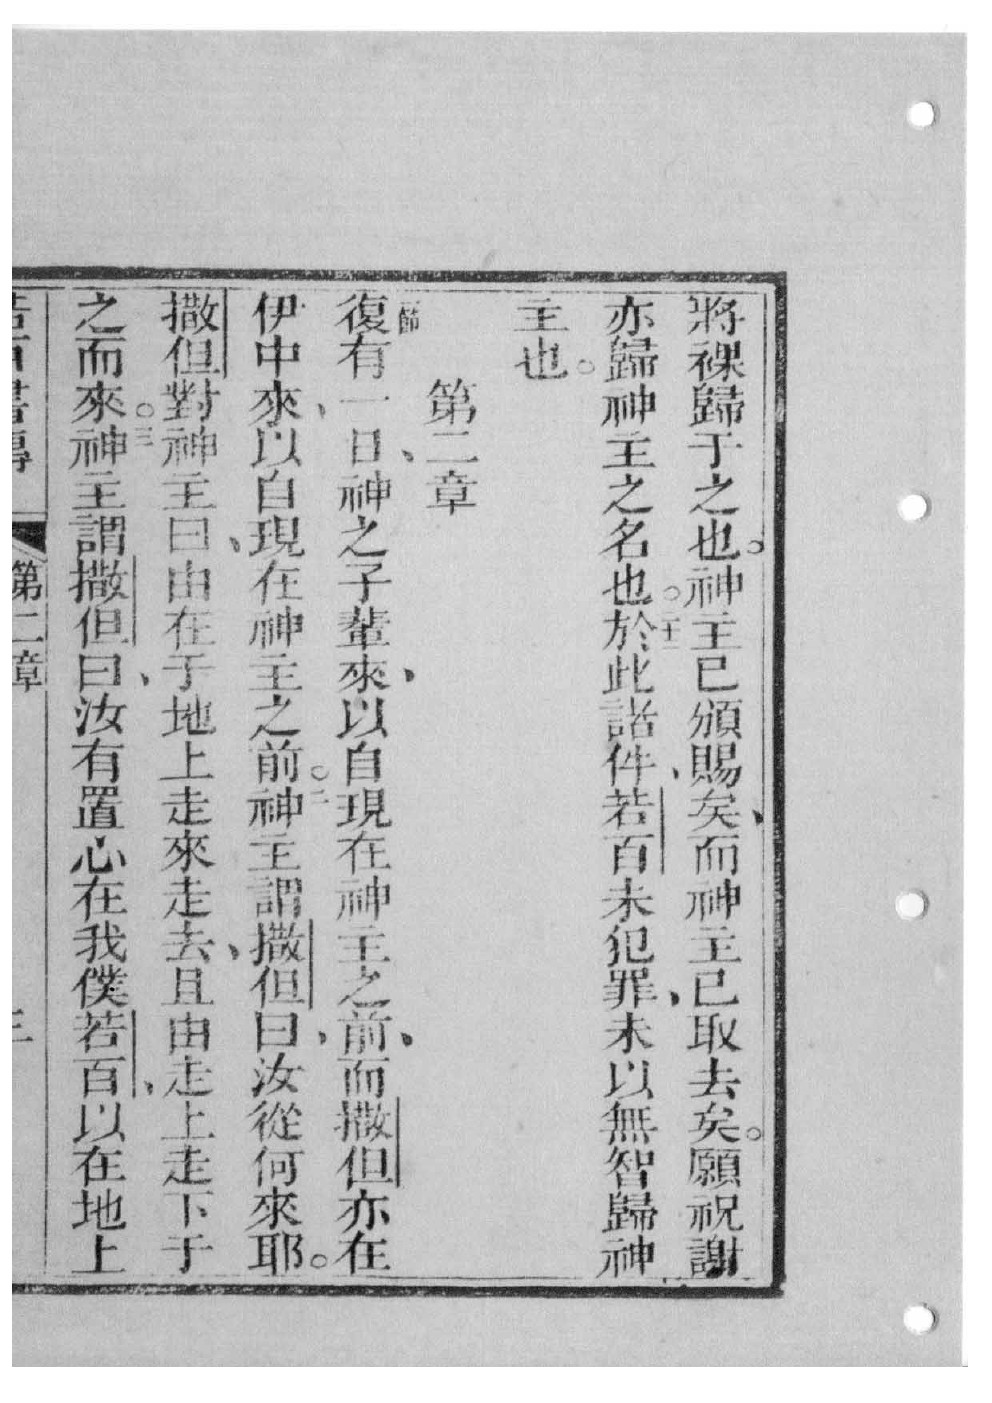 將裸歸于之也。神主已頒賜矣、而神主已取去矣。願祝謝
亦歸神主之名也。○二十二於此諸件、若百未犯罪、未以無智歸神
主也。
第二章
一節復有一日、神之子輩來、以自現在神主之前、而撒但亦在
伊中來、以自現在神主之前。○二神主謂撒但曰、汝從何來耶。
撒但對神主曰、由在于地上走來走去、且由走上走下于
之而來。○三神主謂撒但曰、汝有置心在我僕若百、以在地上
第二章
三